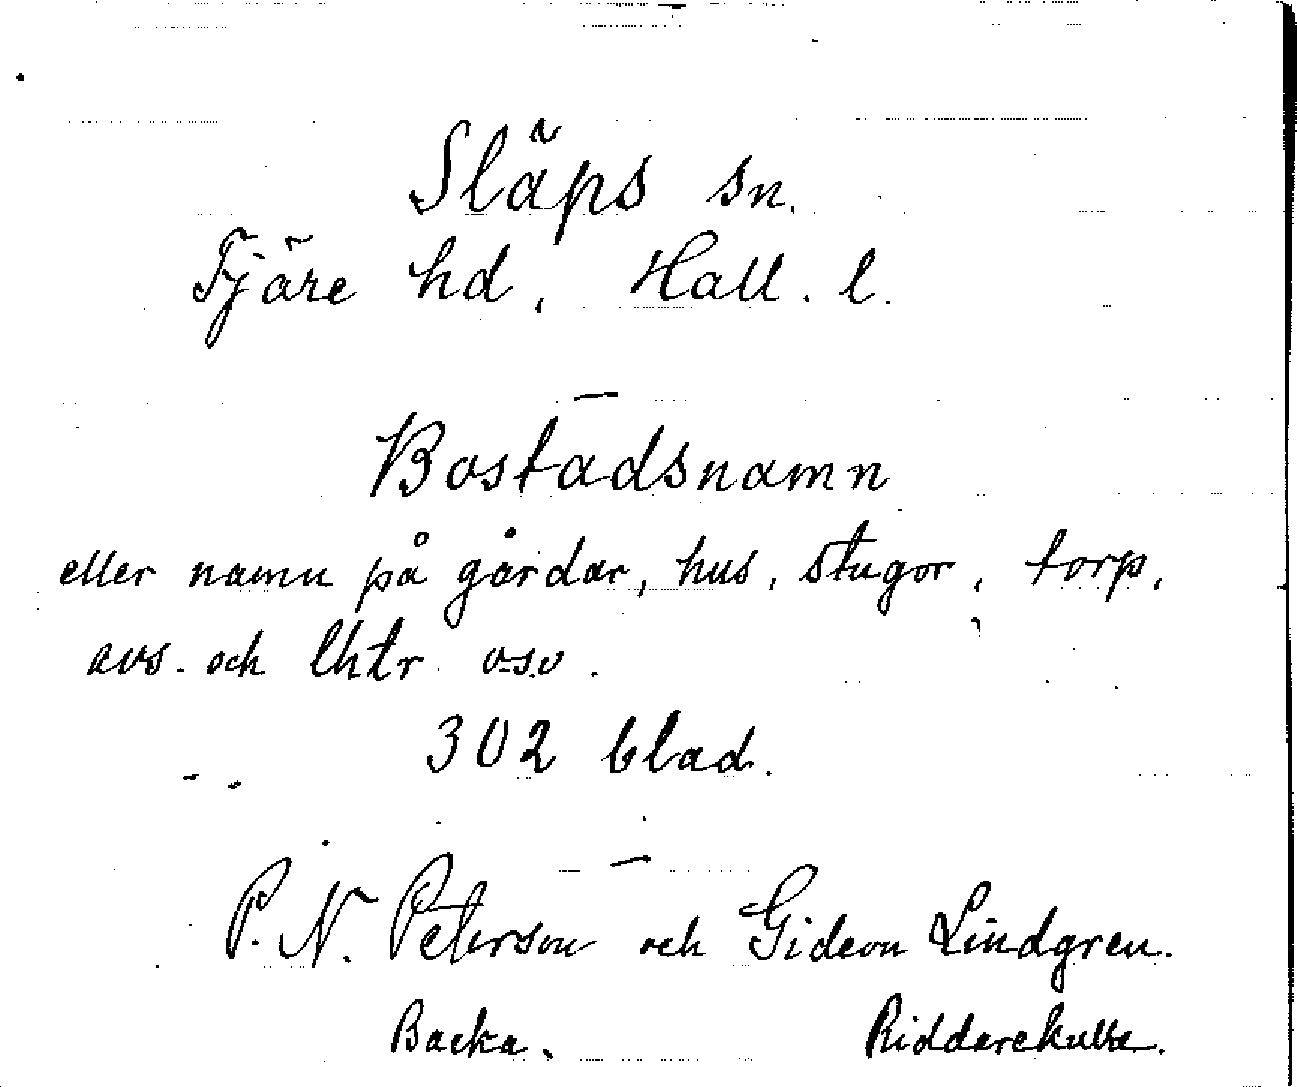 Släps sn.
Fjäre hd, Hall. l.
Bostadsnamn
eller namn på gårdar, hus, stugor, torp,
avs. och lhtr o.s.v.
302 blad.
P. N. Peterson och Gideon Lindgren.
Backa. Riddarekulla.